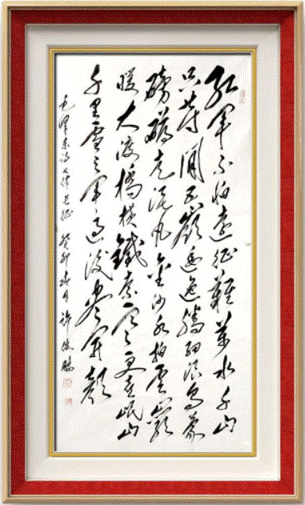 红军不怕远征難萬水千山
只等闲五嶺逶迤腾细浪乌蒙
磅礴走泥丸金沙水拍雲崖
暖大渡橋横鐵索寒更喜岷山
千里雪三军過後尽开颜
毛泽东诗七律长征 癸卯春月许德